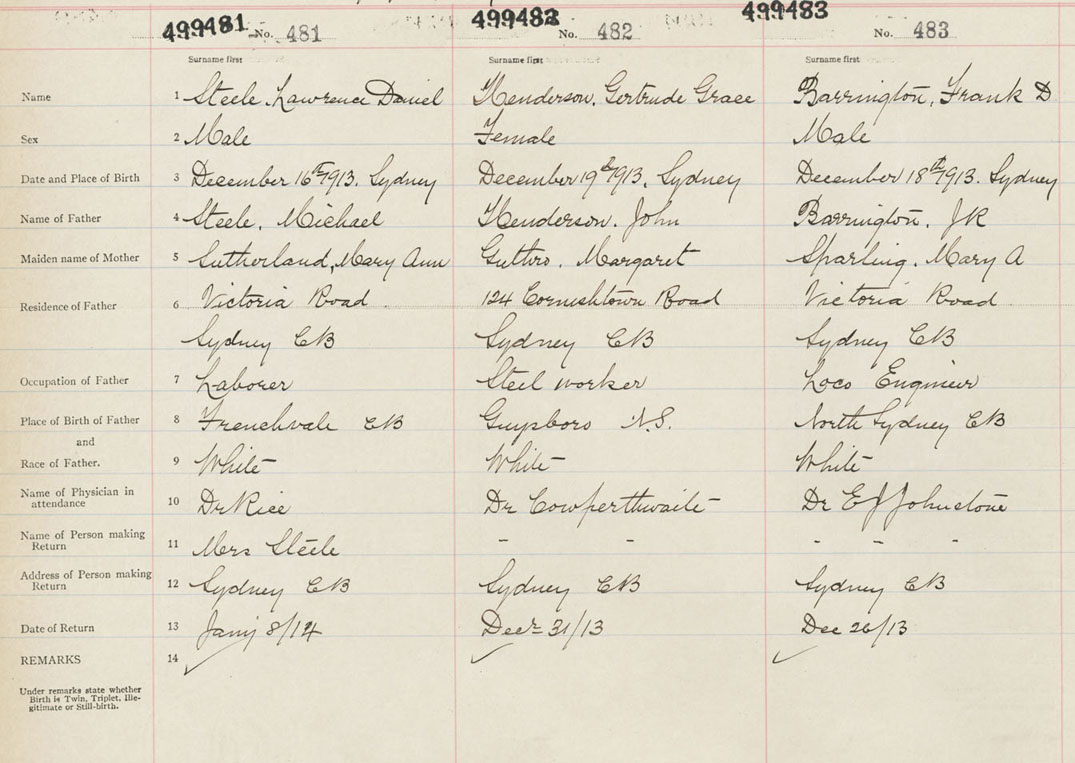 499481 499482 499483
No. 481 No. 482 No. 483
Surname first Surname first Surname first
Name 1 Steele, Lawrence Daniel Henderson, Gertrude Grace Barrington, Frank D
Sex 2 Male Female Male
Date and Place of Birth 3 December 16th 1913. Sydney December 19th 1913. Sydney December 18th 1913. Sydney
Name of Father 4 Steele, Michael Henderson, John Barrington, JR
Maiden name of Mother 5 Sutherland, Mary Ann Guthro. Margaret Sparling. Mary A
Residence of Father 6 Victoria Road 124 Cornishtown Road Victoria Road
Sydney CB Sydney CB Sydney CB
Occupation of Father 7 Laborer Steel worker Loco Engineer
Place of Birth of Father 8 Frenchvale CB Guysboro N.S. North Sydney CB
and
Race of Father. 9 White White White
Name of Physician in attendance 10 Dr Rice Dr Cowperthwaite Dr E J Johnstone
Name of Person making Return 11 Mrs Steele - - - - -
Address of Person making Return 12 Sydney CB Sydney CB Sydney CB
Date of Return 13 Jany 8/14 Decr 31/13 Dec 26/13
REMARKS 14
Under remarks state whether
Birth is Twin, Triplet, Ille-
gitimate or Still-birth.